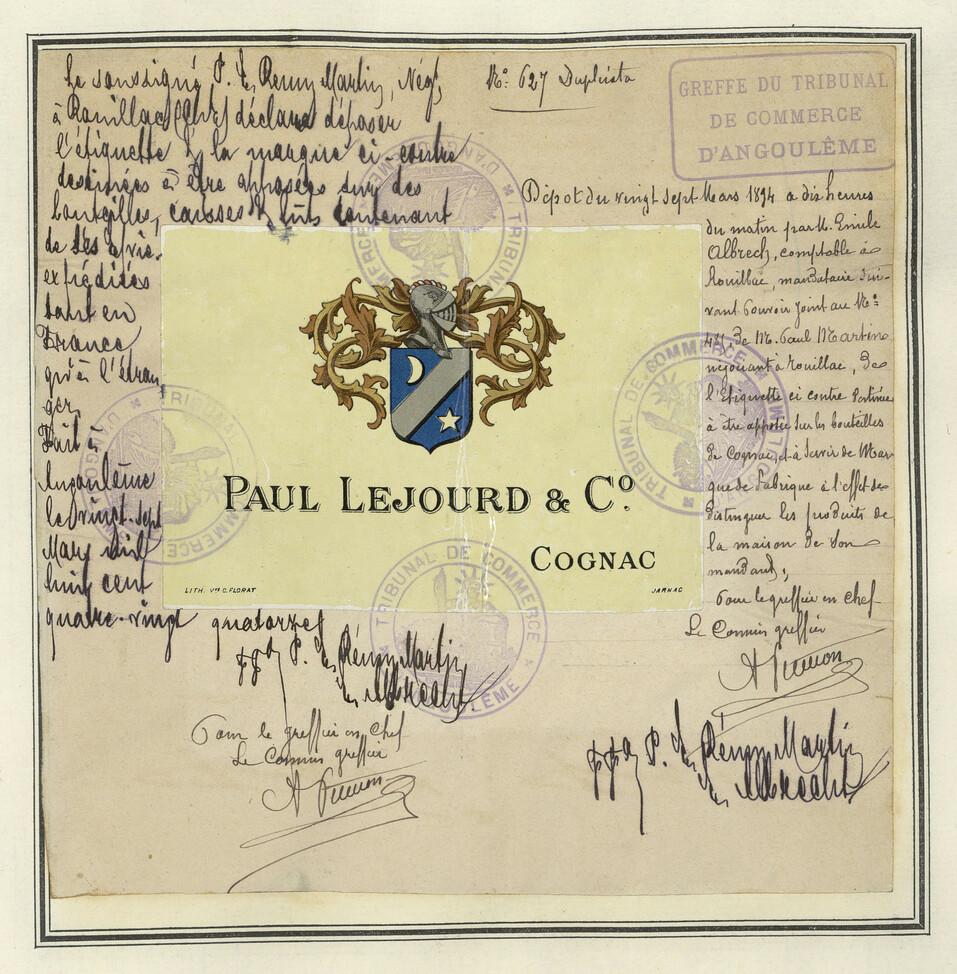 Le soussigné, P. E. Remy Martin, Négt,
à Rouillac (Chte) déclare déposer
l'étiquette & la marque ci-contre
destinées à être apposées sur des
bouteilles, caisses & fûts contenant
de ses
expédiées
tant en
France
qu'à l'étran
ger.
Fait à
Angoulême
le vingt-sept
Mars mil
huit cent
quatre-vingt quatorze
ppon P. E. Rémy Martin
Em Albrecht
Pour le greffier en chef
Le Commis greffier
No 627 Duplicata
GREFFE DU TRIBUNAL
DE COMMERCE
D'ANGOULÊME
Dépôt du vingt sept Mars 1894 à dix heures
du matin par M. Emile
Albrech, comptable à
Rouillac, mandataire sui-
vant pouvoir joint au No
de M. Paul Martin
négociant à Rouillac, de
l'Etiquette ci contre destinée
à être apposée sur les bouteilles
de Cognac, et à servir de Mar
que de Fabrique à l'effet de
distinguer les produits de
la maison de son
mandant,
Pour le greffier en chef
Le Commis greffier
ppon P. E. Rémy Martin
Em Albrecht
PAUL LEJOURD & Co.
COGNAC
LITH. Vve C. FLORAT
JARNAC
TRIBUNAL DE COMMERCE D'ANGOULÊME
TRIBUNAL DE COMMERCE D'ANGOULÊME
TRIBUNAL DE COMMERCE D'ANGOULÊME
TRIBUNAL DE COMMERCE D'ANGOULÊME